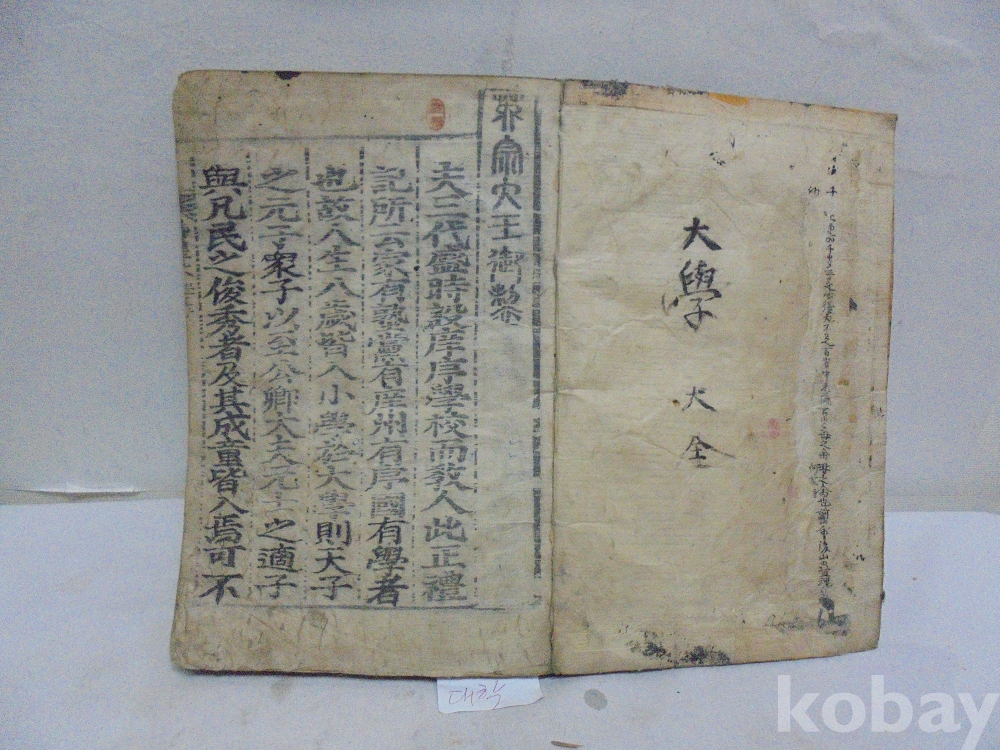 大學 大全
英宗大王御製
夫三代盛時設庠序學校而敎人此正禮
記所云家有塾黨有庠州有序國有學者
也故人生八歲皆入小學於大學則天子
之元子衆子以至公卿大夫元士之適子
與凡民之俊秀者及其成童皆入焉可不
대학
kobay